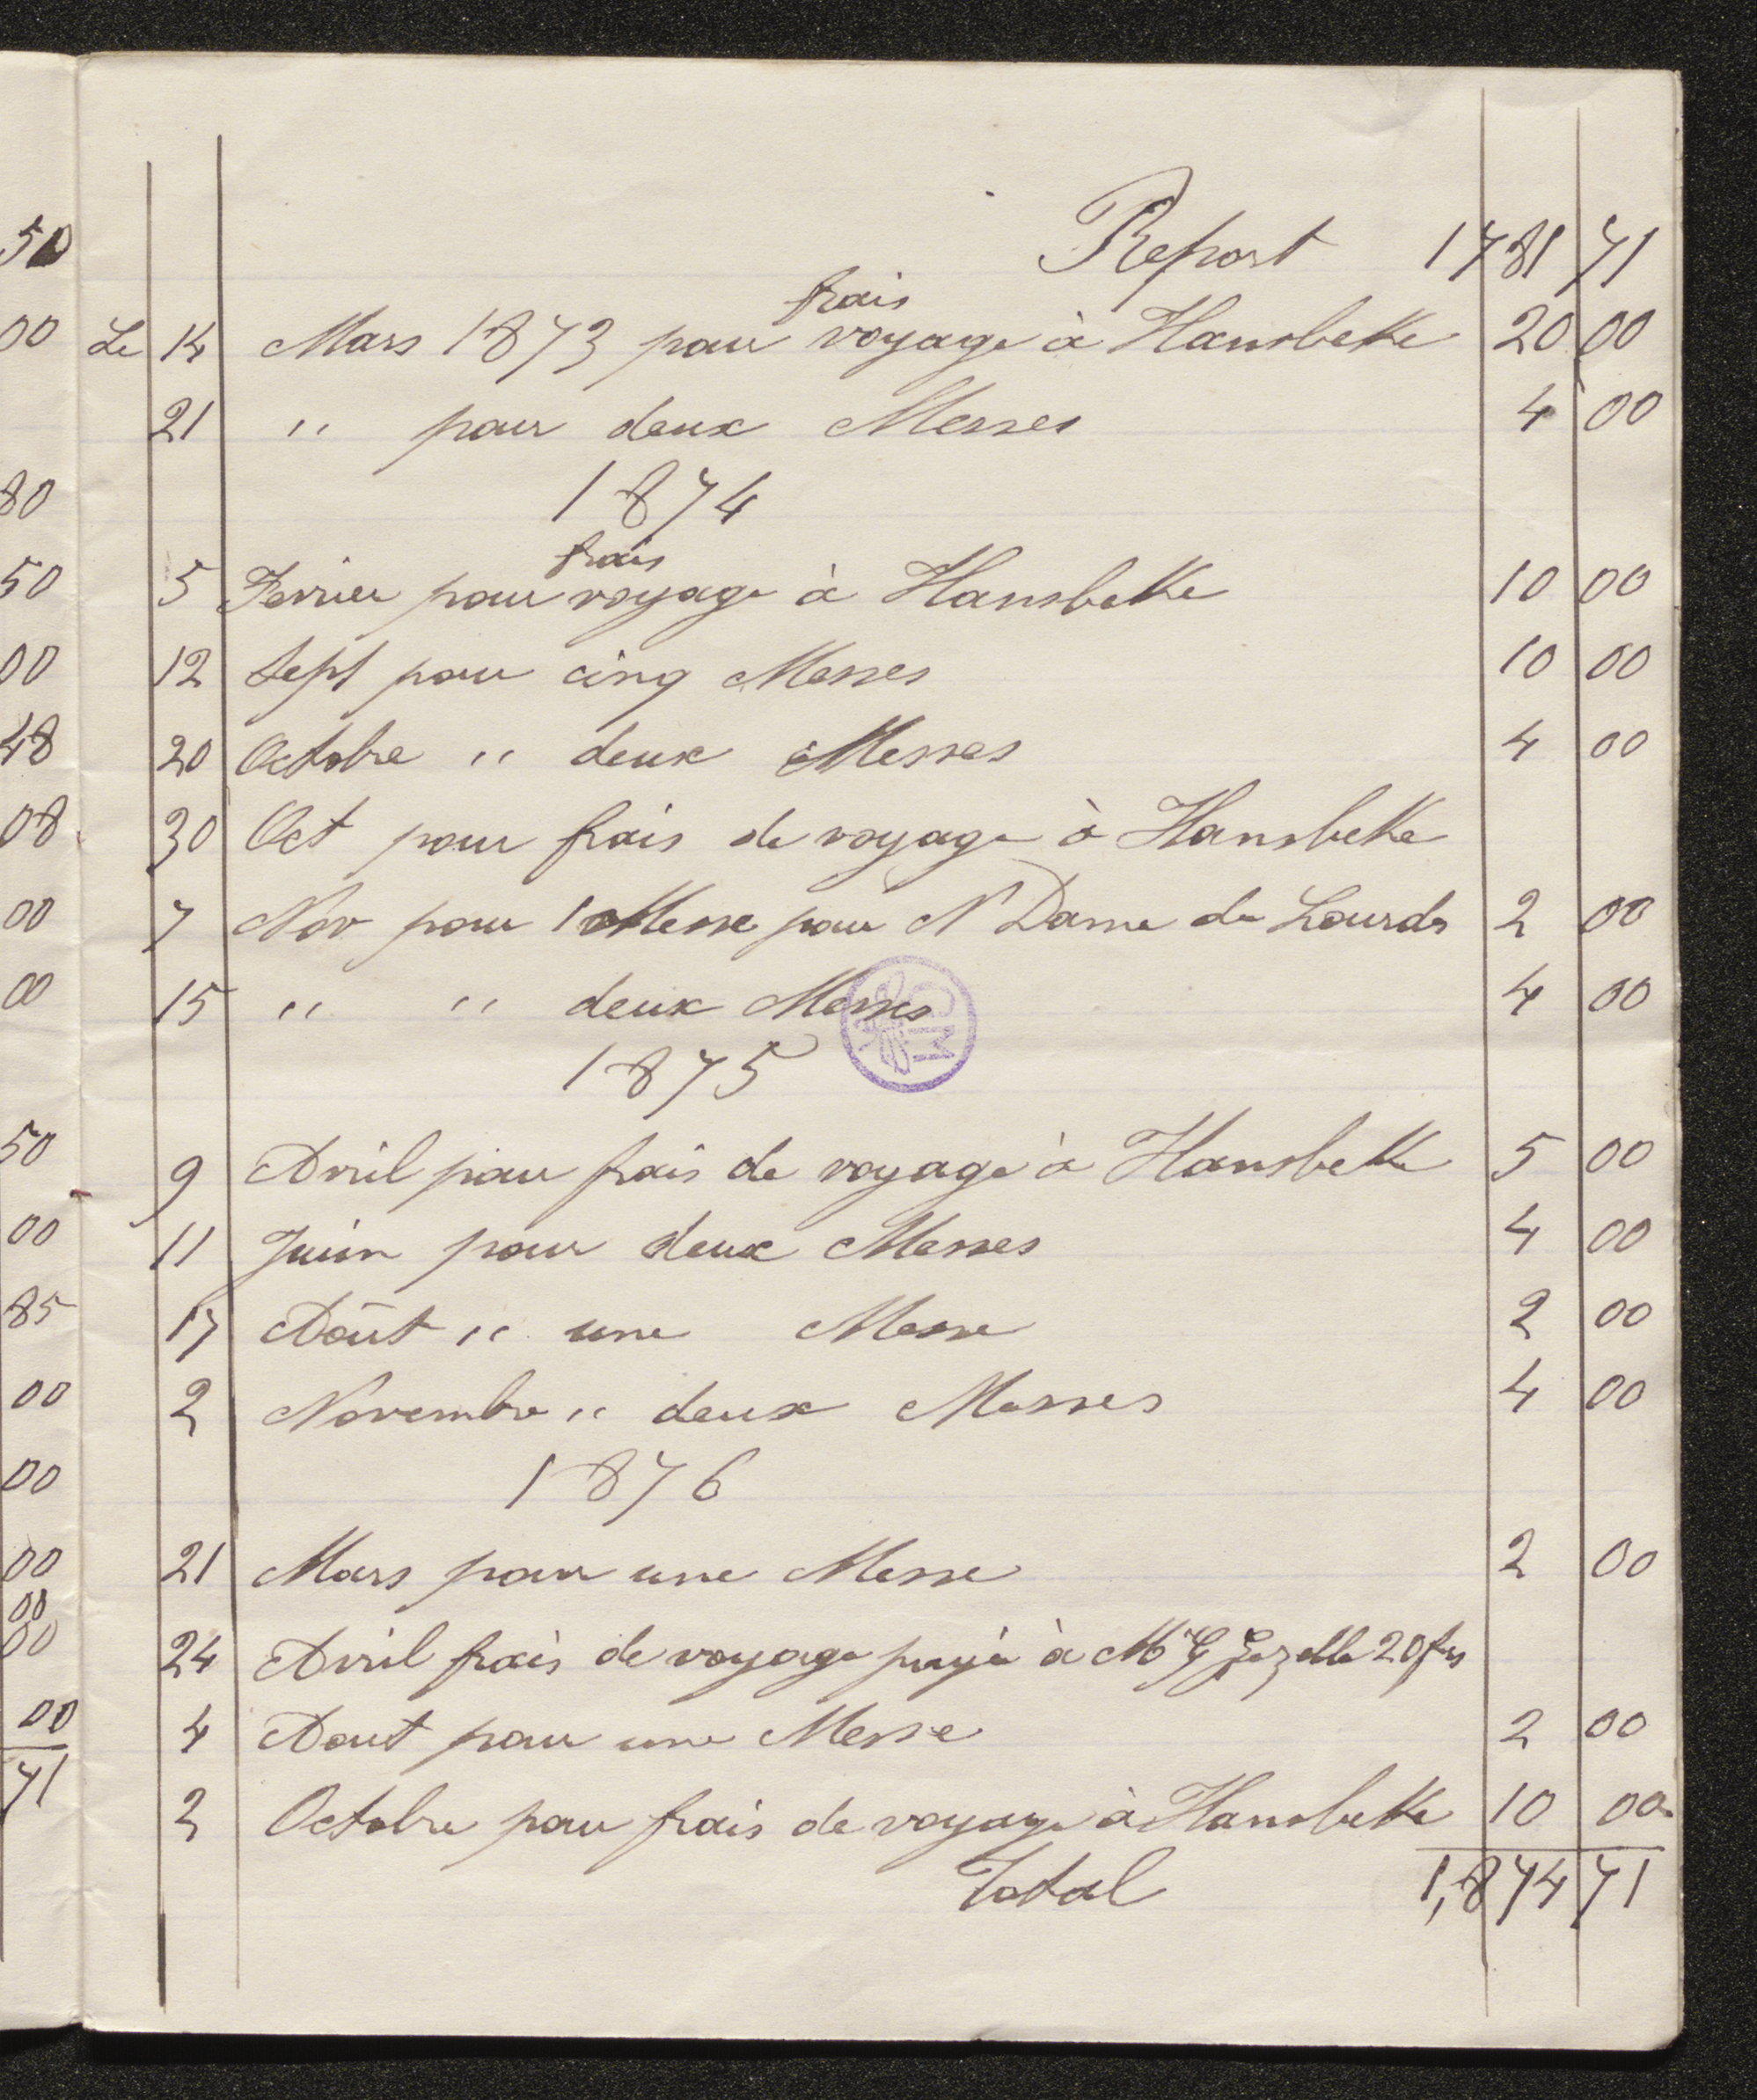 Report 1781 71
Le 14 Mars 1873 pour frais voyage à Hansbeke 20 00
21 " pour deux Messes 4 00
1874
5 Fevrier pour frais voyage à Hansbeke 10 00
12 Sept pour cinq Messes 10 00
20 Octobre " deux Messes 4 00
30 Oct pour frais de voyage à Hansbeke
7 Nov pour 1 Messe pour N Dame de Lourds 2 00
15 " " deux Messes 4 00
1875
9 Avril pour frais de voyage à Hansbeke 5 00
11 Juin pour deux Messes 4 00
17 Aôut " une Messe 2 00
2 Novembre " deux Messes 4 00
1876
21 Mars pour une Messe 2 00
24 Avril frais de voyage payé à Mr G Gezelle 20 frs
4 Aout pour une Messe 2 00
2 Octobre pour frais de voyage à Hansbeke 10 00
Total 1,874 71
50
00
80
50
00
48
08
00
00
50
00
85
00
00
00
00
00
00
71